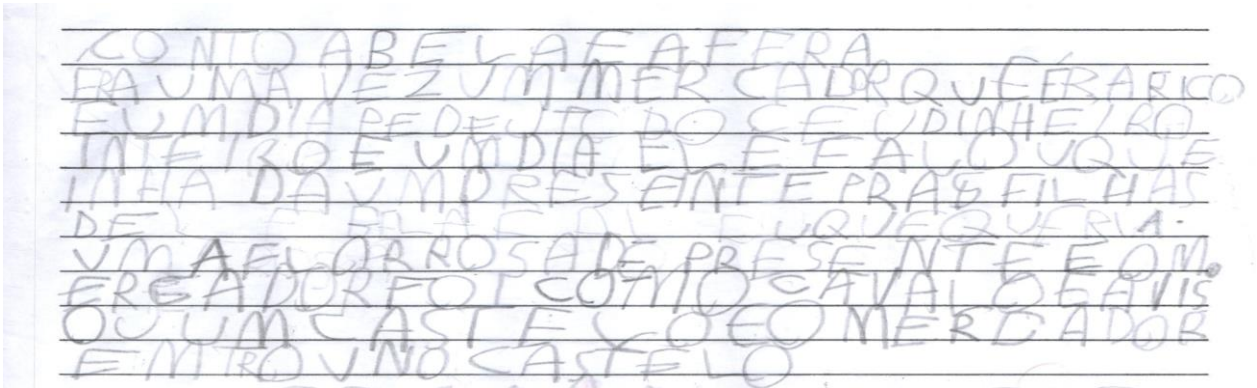 CONTO A BELA E A FERA
ERA UMA VEZ UM MERCADOR QUE ÉRA RICO
E UM DIA PEDEU TODO CEU DINHEIRO
INTEIRO E UM DIA ELE FALOU QUE
INHA DA UM PRESEINTE PRAS FILHAS
DELE FILHA E QUE QUERIA.
UMA FLOR ROSA DE PRESENTE E O M.
ERCADOR FOI COM O CAVALO E AVIS
OU UM CASTELO E O MERCADOR
EMTROU NO CASTELO